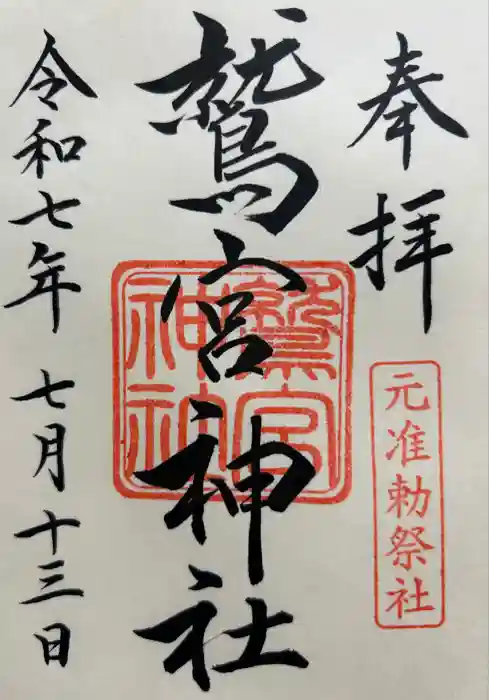 奉拝
元准勅祭社
鷲宮神社
鷲宮
神社
令和七年 七月十三日